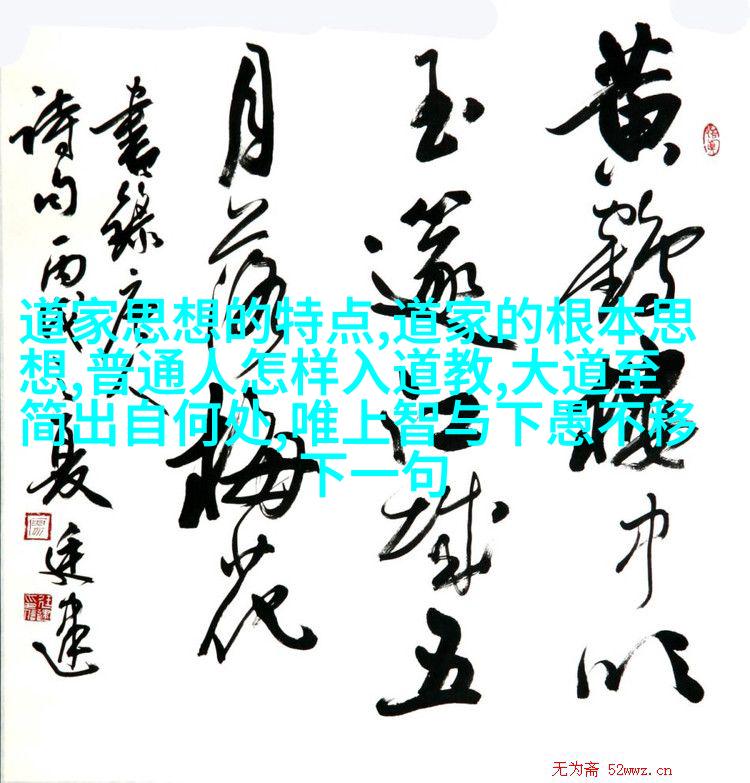 黄鶴樓中吹
玉篴江城五
月落梅花
書錄唐人
詩句丙戌之夏廷建
道家思想的特点,道家的根本思
想,普通人怎样入道教,大道至
简出自何处,唯上智与下愚不移
下一句
无为斋 52wwz.cn